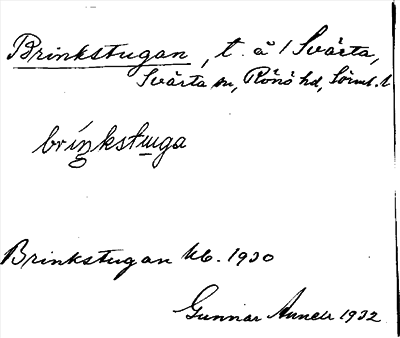 Brinkstugan, t. å / Svärta,
Svärta sn, Rönö hd, Sörml. l.
bríŋkstuga
Brinkstugan kb. 1930
Gunnar Annell 1932